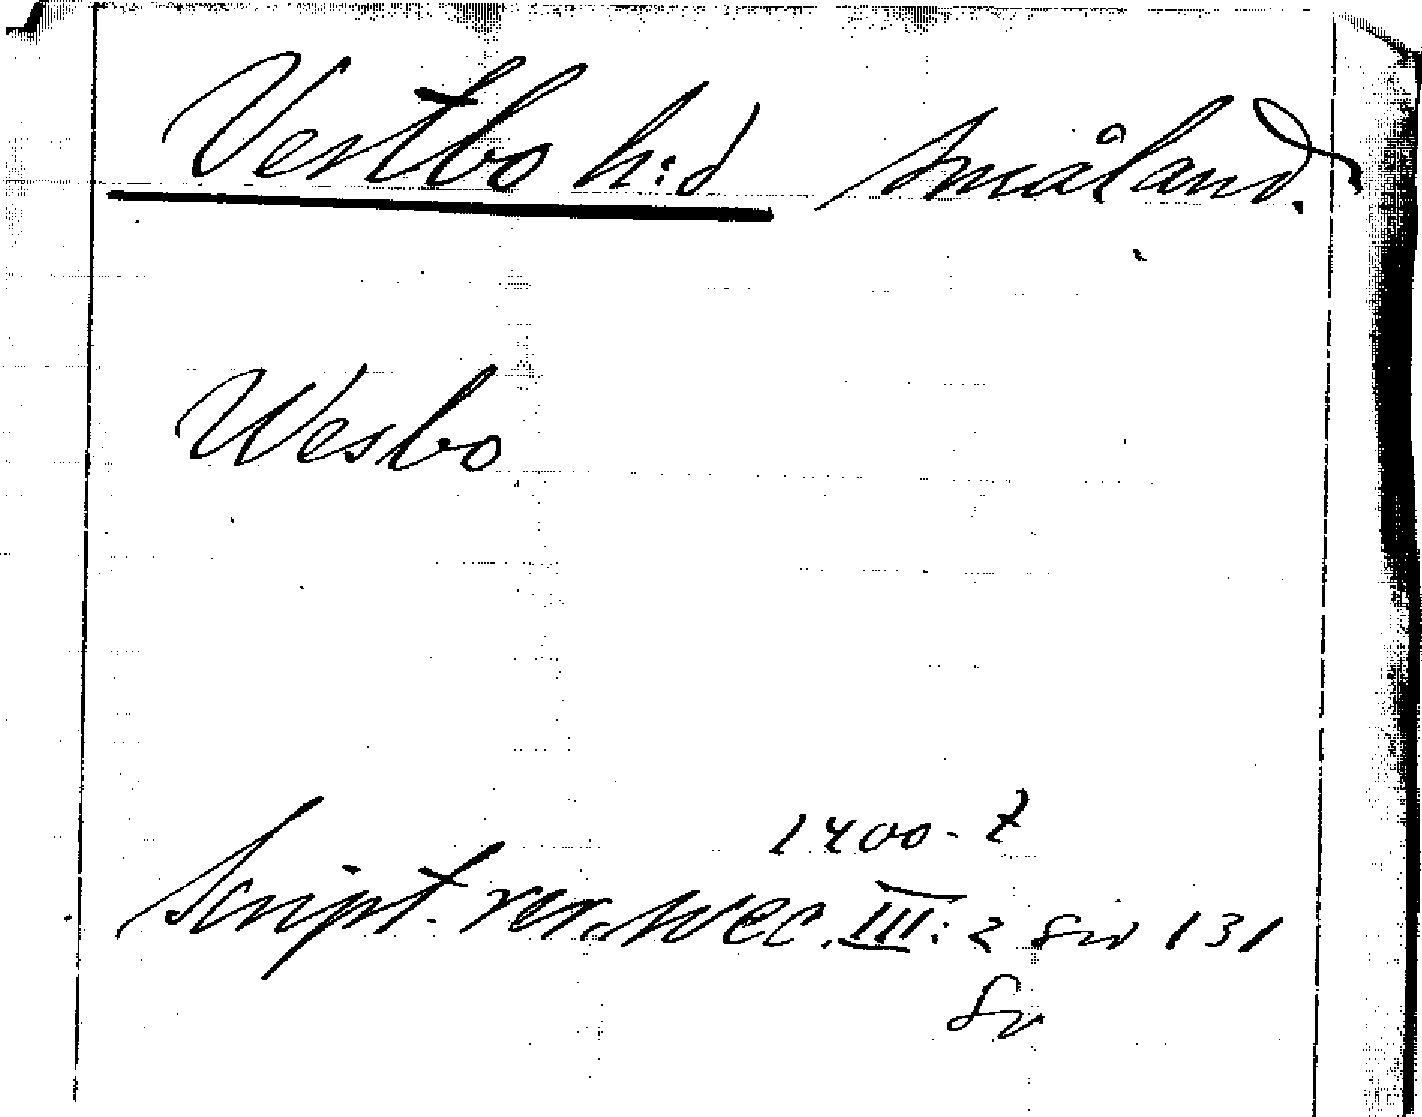 Vestbo h:d Småland.
Wesbo
1400-t
Script. rer. svec. III: 2 sid 131
Sv